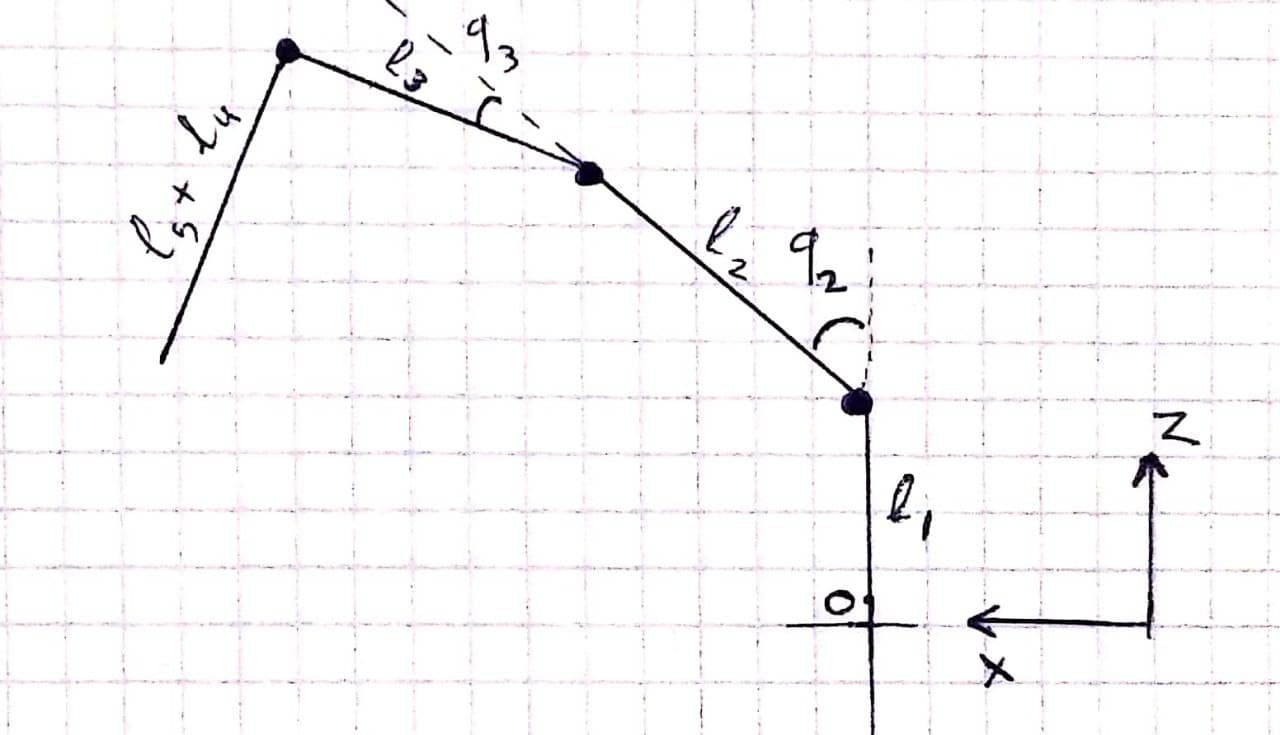 l3
q3
l5 + l4
l2
q2
Z
l1
O
X